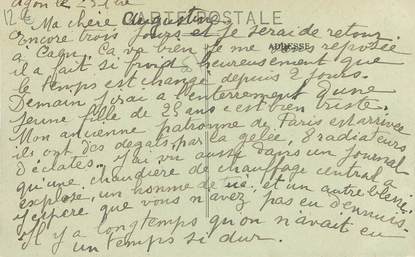 Agon le 25
12 h
CARTE POSTALE
Ma chère Augustine
Encore trois jours et je serai de retour
ADRESSE
à Caen. Ça va bien je me suis reposée
il a fait si froid heureusement que
le temps est changé depuis 2 jours.
Demain j'irai à l'enterrement d'une
jeune fille de 25 ans c'est bien triste.
Mon ancienne patronne de Paris est arrivée
ils ont des dégats par la gelée, 8 radiateurs
d'éclatés. J'ai vu aussi dans un journal
qu'une chaudière de chauffage central a
explosé, un homme de tué et un autre blessé.
J'espère que vous n'avez pas eu d'ennuis.
Il y a longtemps qu'on n'avait eu
un temps si dur.